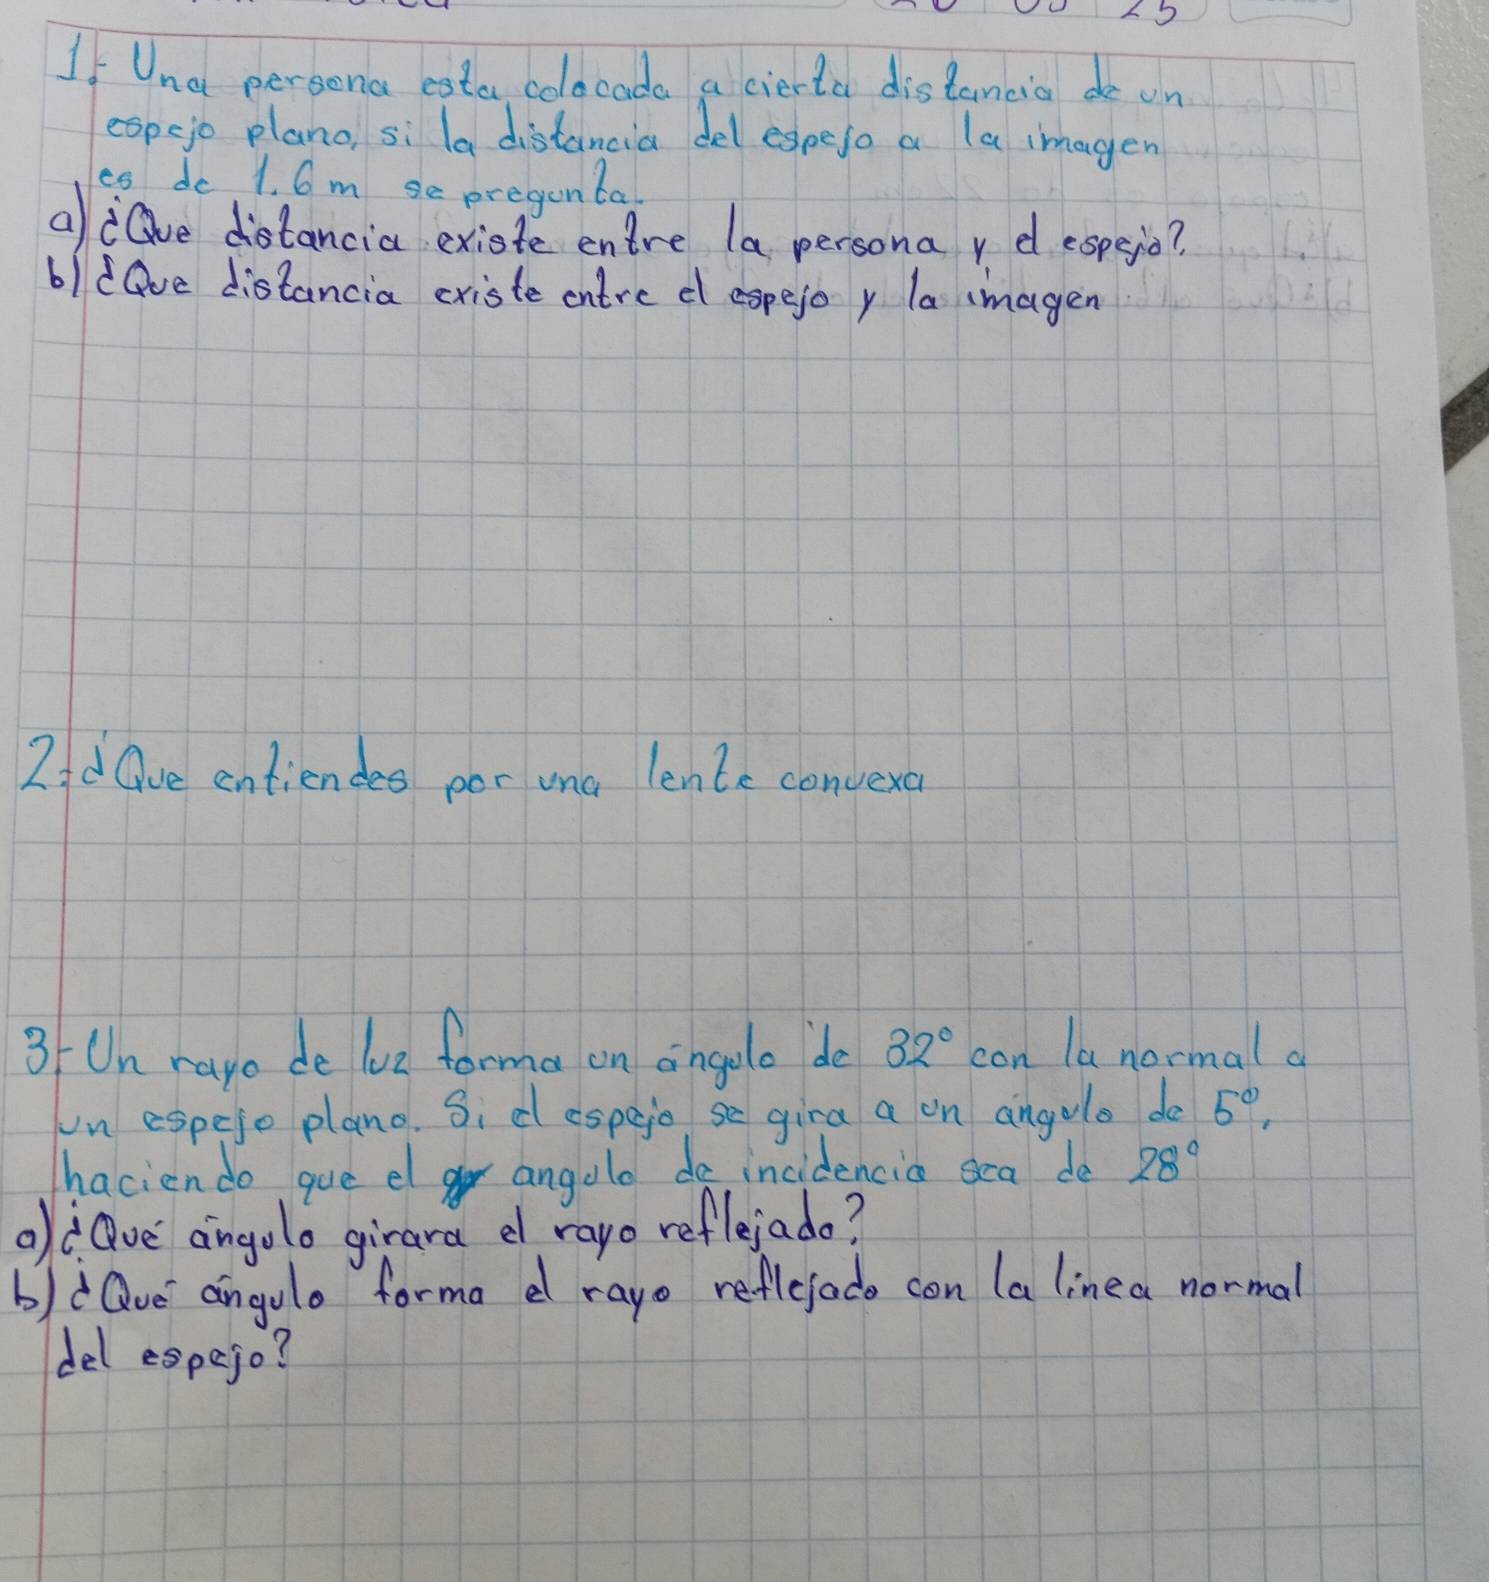 25
1.- Una persona esta colocada a cierta distancia de un
espejo plano, si la distancia del espejo a la imagen
es de 1.6 m se pregunta.
a) ¿Que distancia existe entre la persona y el espejo?
b) ¿Que distancia existe entre el espejo y la imagen
2.- ¿Que entiendes por una lente convexa
3.- Un rayo de luz forma un ángulo de 32° con la normal a
un espejo plano. Si el espejo se gira a un ángulo de 5°,
haciendo que el angulo de incidencia sea de 28°
a) ¿Qué ángulo girara el rayo reflejado?
b) ¿Qué ángulo forma el rayo reflejado con la linea normal
del espejo?